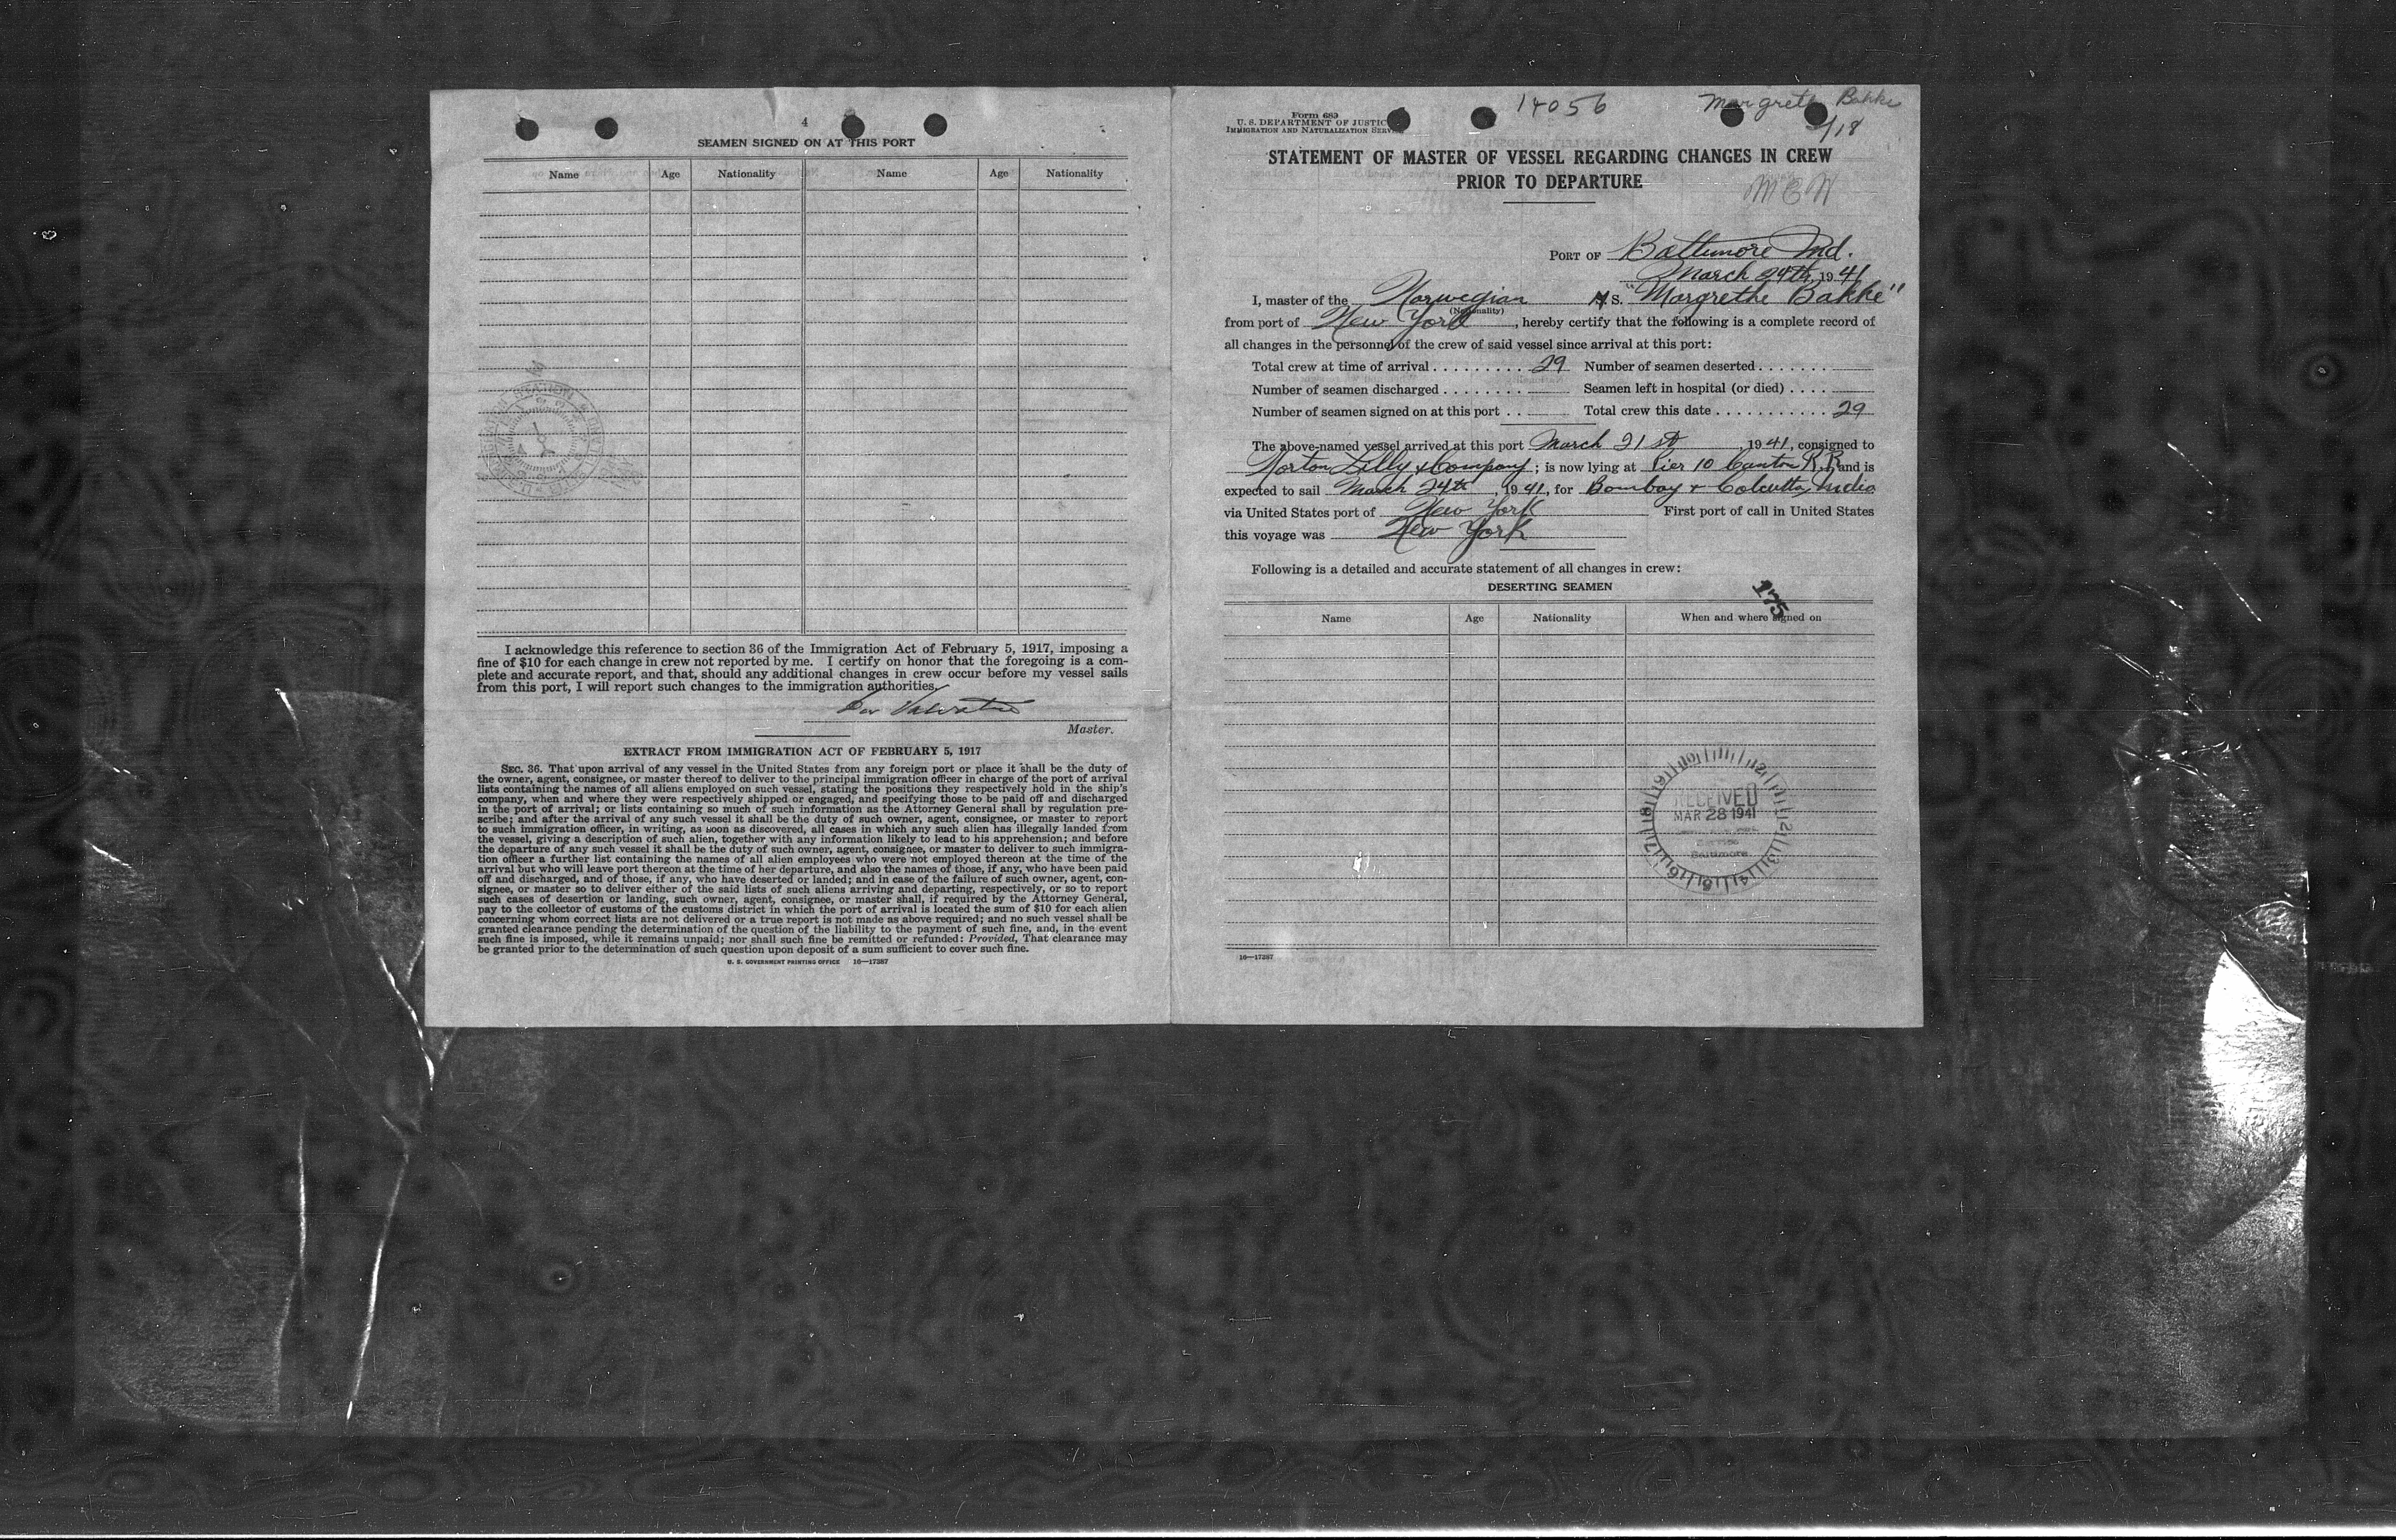 4
SEAMEN SIGNED ON AT THIS PORT
Name Age Nationality Name Age Nationality
I acknowledge this reference to section 36 of the Immigration Act of February 5, 1917, imposing a
fine of $10 for each change in crew not reported by me. I certify on honor that the foregoing is a com-
plete and accurate report, and that, should any additional changes in crew occur before my vessel sails
from this port, I will report such changes to the immigration authorities.
Master.
EXTRACT FROM IMMIGRATION ACT OF FEBRUARY 5, 1917
SEC. 36. That upon arrival of any vessel in the United States from any foreign port or place it shall be the duty of
the owner, agent, consignee, or master thereof to deliver to the principal immigration officer in charge of the port of arrival
lists containing the names of all aliens employed on such vessel, stating the positions they respectively hold in the ship's
company, when and where they were respectively shipped or engaged, and specifying those to be paid off and discharged
in the port of arrival; or lists containing so much of such information as the Attorney General shall by regulation pre-
scribe; and after the arrival of any such vessel it shall be the duty of such owner, agent, consignee, or master to report
to such immigration officer, in writing, as soon as discovered, all cases in which any such alien has illegally landed from
the vessel, giving a description of such alien, together with any information likely to lead to his apprehension; and before
the departure of any such vessel it shall be the duty of such owner, agent, consignee, or master to deliver to such immigra-
tion officer a further list containing the names of all alien employees who were not employed thereon at the time of the
arrival but who will leave port thereon at the time of her departure, and also the names of those, if any, who have been paid
off and discharged, and of those, if any, who have deserted or landed; and in case of the failure of such owner, agent, con-
signee, or master so to deliver either of the said lists of such aliens arriving and departing, respectively, or so to report
such cases of desertion or landing, such owner, agent, consignee, or master shall, if required by the Attorney General,
pay to the collector of customs of the customs district in which the port of arrival is located the sum of $10 for each alien
concerning whom correct lists are not delivered or a true report is not made as above required; and no such vessel shall be
granted clearance pending the determination of the question of the liability to the payment of such fine, and, in the event
such fine is imposed, while it remains unpaid; nor shall such fine be remitted or refunded: Provided, That clearance may
be granted prior to the determination of such question upon deposit of a sum sufficient to cover such fine.
U. S. GOVERNMENT PRINTING OFFICE 16—17387
14056 Margrethe Bakke
Form 689
U. S. DEPARTMENT OF JUSTICE
IMMIGRATION AND NATURALIZATION SERVICE
STATEMENT OF MASTER OF VESSEL REGARDING CHANGES IN CREW
PRIOR TO DEPARTURE
PORT OF Baltimore Md.
March 24th, 1941
I, master of the Norwegian M S. "Margrethe Bakke"
(Nationality)
from port of New York, hereby certify that the following is a complete record of
all changes in the personnel of the crew of said vessel since arrival at this port:
Total crew at time of arrival 29 Number of seamen deserted
Number of seamen discharged Seamen left in hospital (or died)
Number of seamen signed on at this port Total crew this date 29
The above-named vessel arrived at this port March 21st, 1941, consigned to
Norton Lilly & Company; is now lying at Pier 10 Canton R.R. and is
expected to sail March 24th, 1941, for Bombay & Calcutta, India
via United States port of New York First port of call in United States
this voyage was New York
Following is a detailed and accurate statement of all changes in crew:
DESERTING SEAMEN
175
Name Age Nationality When and where signed on
RECEIVED
MAR 28 1941
Baltimore
16—17387